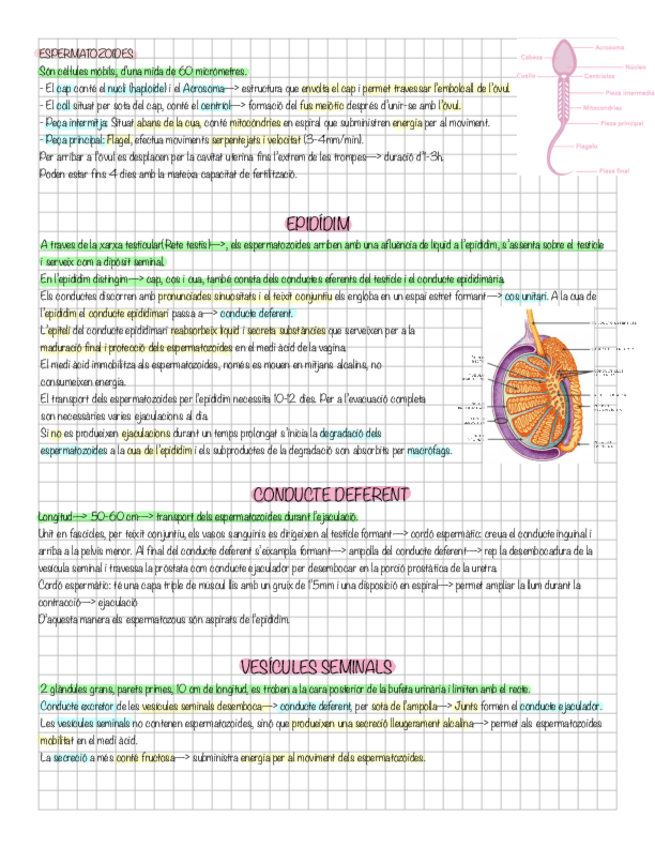 ESPERMATOZOIDES
Són cèl·lules mòbils, d'una mida de 60 micròmetres.
- El cap conté el nucli (haploide) i el Acrosoma—> estructura que envolta el cap i permet travessar l'embolcall de l'òvul.
- El coll situat per sota del cap, conté el centriol—> formació del fus meiòtic després d'unir-se amb l'òvul.
- Peça intermitja: Situat abans de la cua, conté mitocòndries en espiral que subministren energia per al moviment.
- Peça principal: Flagel, efectua moviments serpentejats i velocitat (3-4mm/min).
Per arribar a l'òvul es desplacen per la cavitat uterina fins l'extrem de les trompes—> duració d'1-3h.
Poden estar fins 4 dies amb la mateixa capacitat de fertilització.
Cabeza
Cuello
Acrosoma
Núcleo
Centriolos
Pieza intermedia
Mitocondrias
Pieza principal
Flagelo
Pieza final
EPIDÍDIM
A traves de la xarxa testicular(Rete testis)—>, els espermatozoides arriben amb una afluència de líquid a l'epidídim, s'assenta sobre el testicle
i serveix com a dipòsit seminal.
En l'epidídim distingim—> cap, cos i cua, també consta dels conductes eferents del testicle i el conducte epididimària.
Els conductes discorren amb pronunciades sinuositats i el teixit conjuntiu els engloba en un espai estret formant—> cos unitari. A la cua de
l'epidídim el conducte epididimari passa a—> conducte deferent.
L'epiteli del conducte epididimari reabsorbeix líquid i secreta substàncies que serveixen per a la
maduració final i protecció dels espermatozoides en el medi àcid de la vagina.
El medi àcid immobilitza als espermatozoides, només es mouen en mitjans alcalins, no
consumeixen energia.
El transport dels espermatozoides per l'epidídim necessita 10-12 dies. Per a l'evacuació completa
son necessàries varies ejaculacions al dia.
Si no es produeixen ejaculacions durant un temps prolongat s'inicia la degradació dels
espermatozoides a la cua de l'epidídim i els subproductes de la degradació son absorbits per macròfags.
CONDUCTE DEFERENT
Longitud—> 50-60 cm—> transport dels espermatozoides durant l'ejaculació.
Unit en fascicles, per teixit conjuntiu, els vasos sanguinis es dirigeixen al testicle formant—> cordó espermàtic: creua el conducte inguinal i
arriba a la pelvis menor. Al final del conducte deferent s'eixampla formant—> ampolla del conducte deferent—> rep la desembocadura de la
vesícula seminal i travessa la pròstata com conducte ejaculador per desembocar en la porció prostàtica de la uretra.
Cordó espermàtic: té una capa triple de múscul llis amb un gruix de 1'5mm i una disposició en espiral—> permet ampliar la llum durant la
contracció—> ejaculació
D'aquesta manera els espermatozous són aspirats de l'epidídim.
VESÍCULES SEMINALS
2 glàndules grans, parets primes, 10 cm de longitud, es troben a la cara posterior de la bufeta urinària i limiten amb el recte.
Conducte excretor de les vesícules seminals desemboca—> conducte deferent, per sota de l'ampolla—> Junts formen el conducte ejaculador.
Les vesícules seminals no contenen espermatozoides, sinó que produeixen una secreció lleugerament alcalina—> permet als espermatozoides
mobilitat en el medi àcid.
La secreció a més conté fructosa—> subministra energia per al moviment dels espermatozoides.